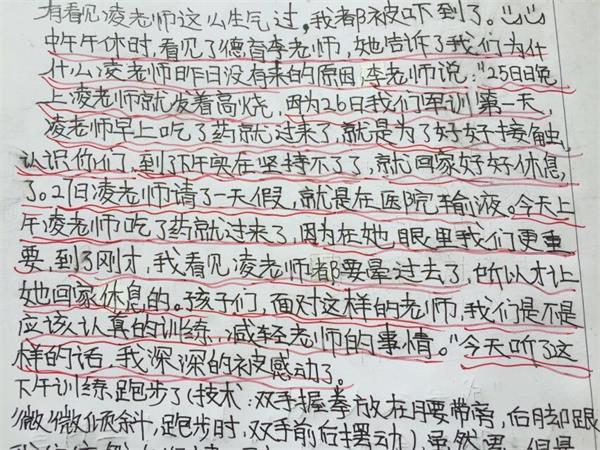 有看见凌老师这么生气过，我都被吓到了。
中午午休时，看见了德育李老师，她告诉了我们为什
什么凌老师昨日没有来的原因李老师说："25日晚
上凌老师就发着高烧，因为26日我们军训第一天，
凌老师早上吃了药就过来了，就是为了好好接触，
认识你们，到了下午实在坚持不了了，就回家好好休息，
了。27日凌老师请了一天假，就是在医院输液。今天上
午凌老师吃了药就过来了，因为在她眼里我们更重
要，到了刚才，我看见凌老师都要晕过去了，所以才让
她回家休息的。孩子们，面对这样的老师，我们是不是
应该认真的训练，减轻老师的事情。"今天听了这
样的话，我深深的被感动了。
下午训练跑步了（技术：双手握拳放在腰带旁，后脚跟
微微倾斜，跑步时，双手前后摆动），虽然累，但是